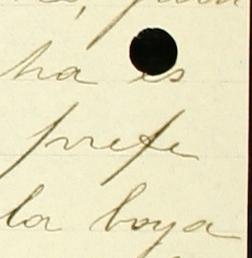 ha es
prefe
la boya